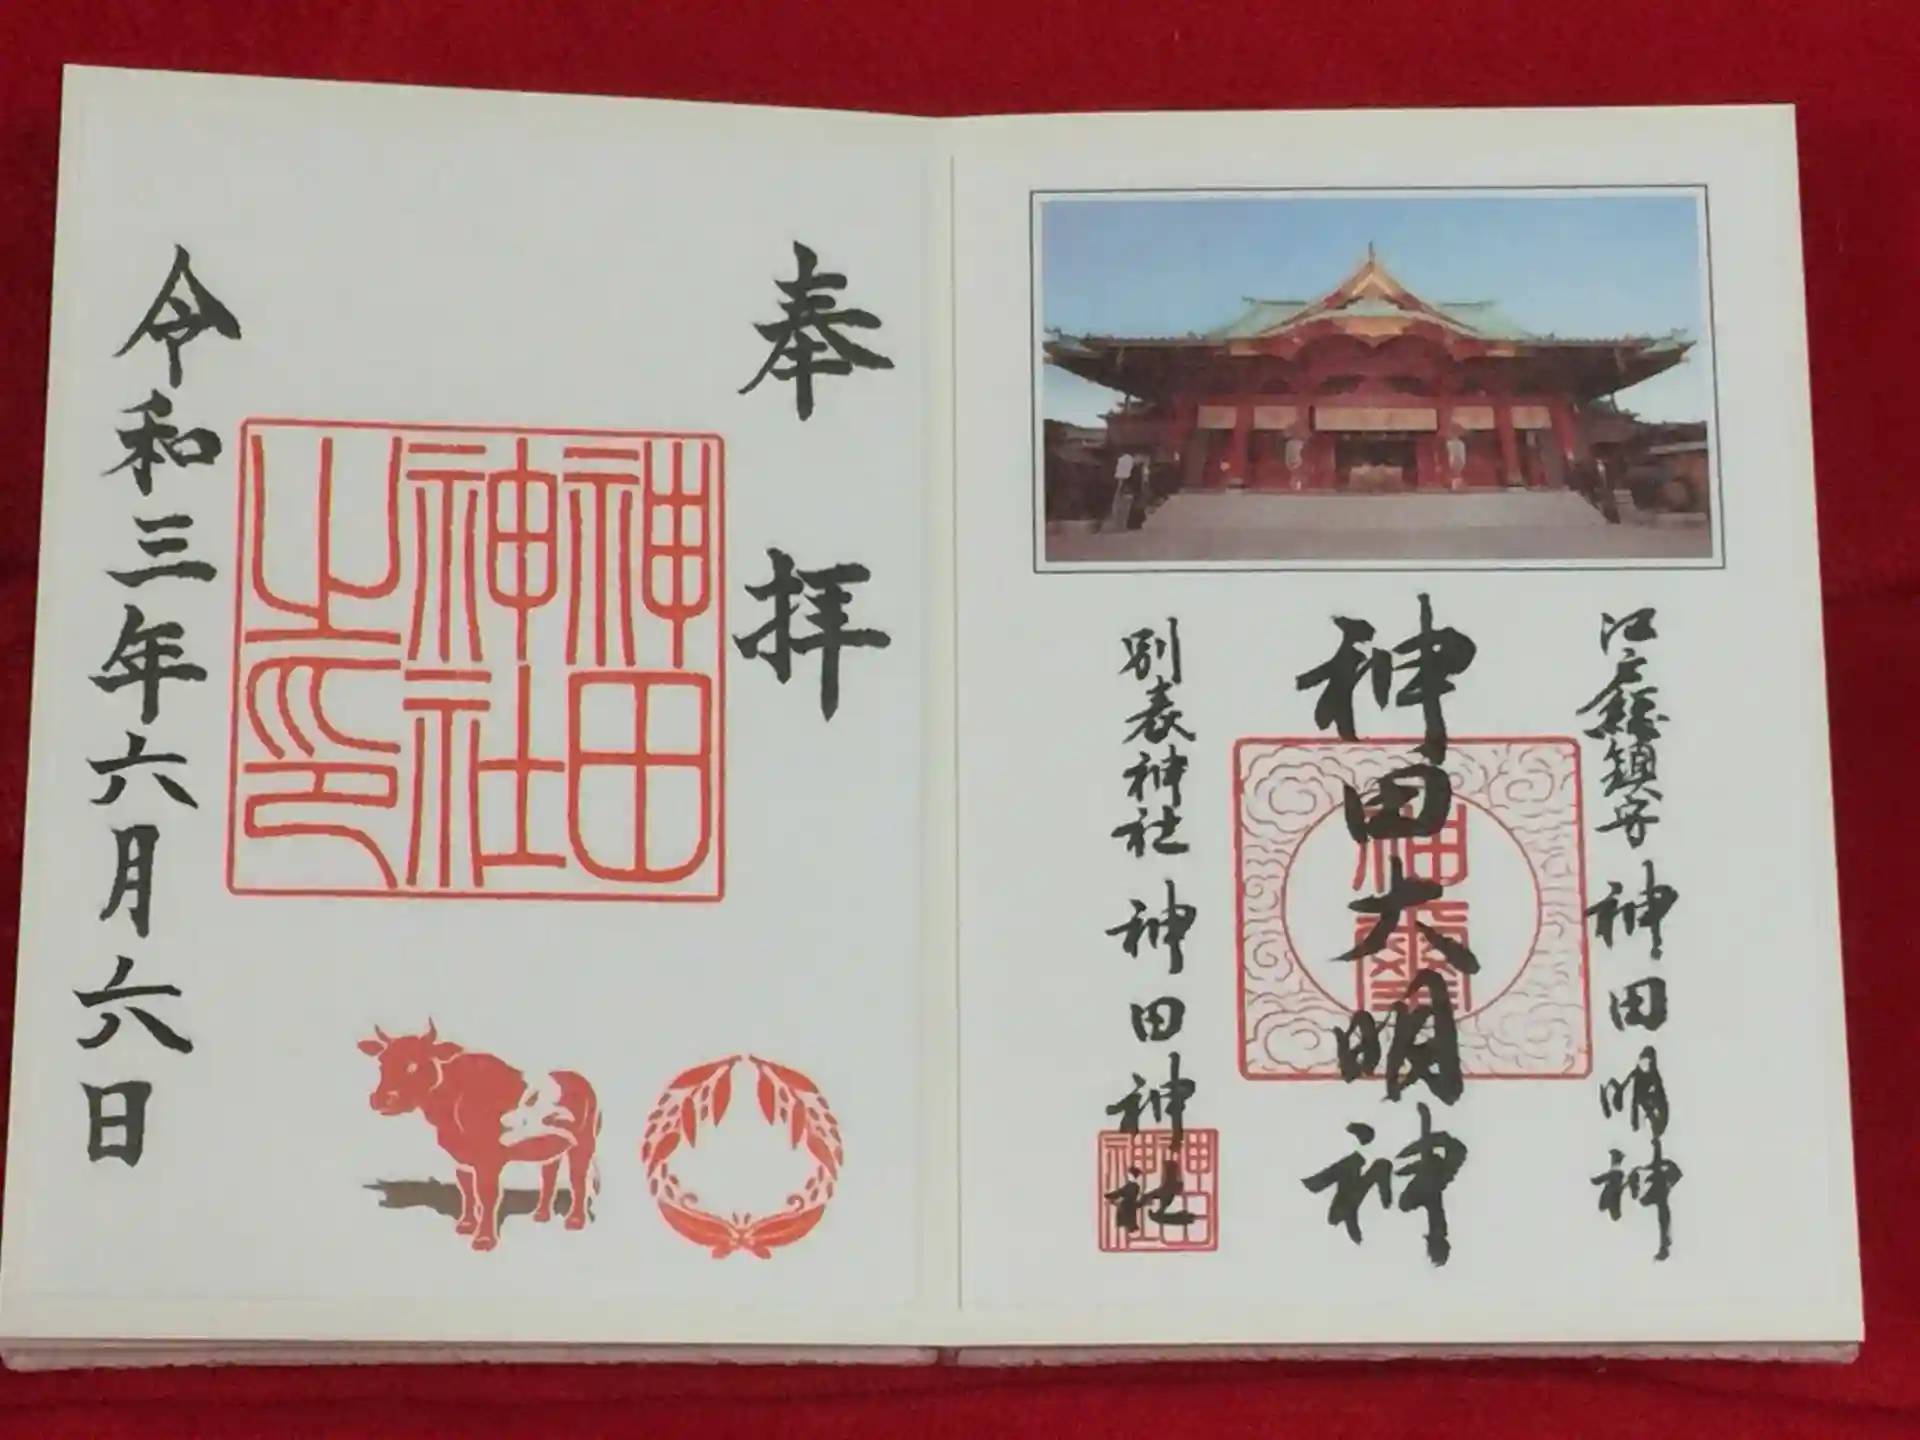 江戸總鎮守 神田明神
神田大明神
神璽
別表神社 神田神社
神田神社
奉拝
神田神社之印
令和三年六月六日